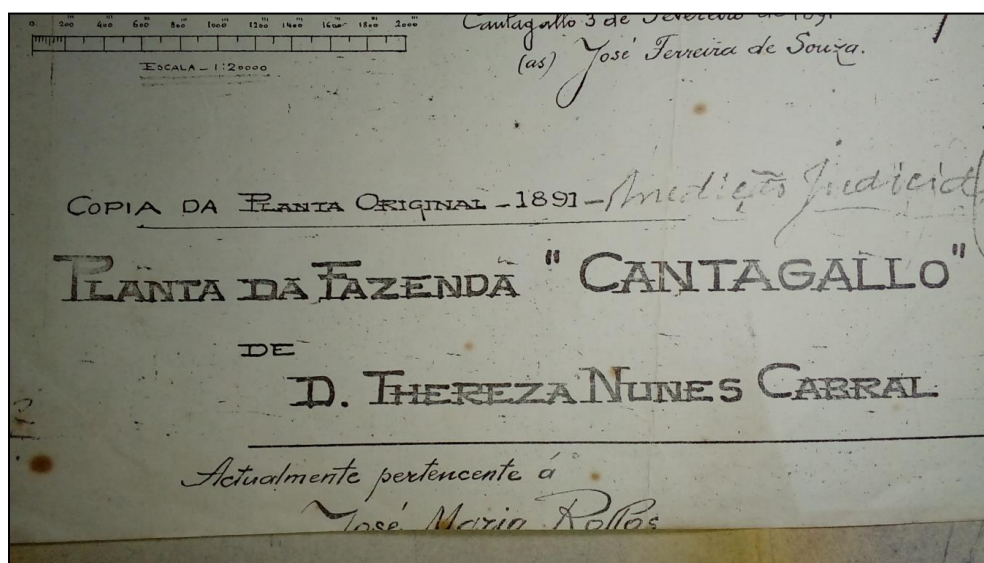 0 200 400 600 800 1000 1200 1400 1600 1800 2000
ESCALA - 1:20000
Cantagallo 3 de Fevereiro de 1891
(as) José Ferreira de Souza.
COPIA DA PLANTA ORIGINAL - 1891 - Medição Judicial
PLANTA DA FAZENDA "CANTAGALLO"
DE
D. THEREZA NUNES CABRAL
Actualmente pertencente á
José Maria